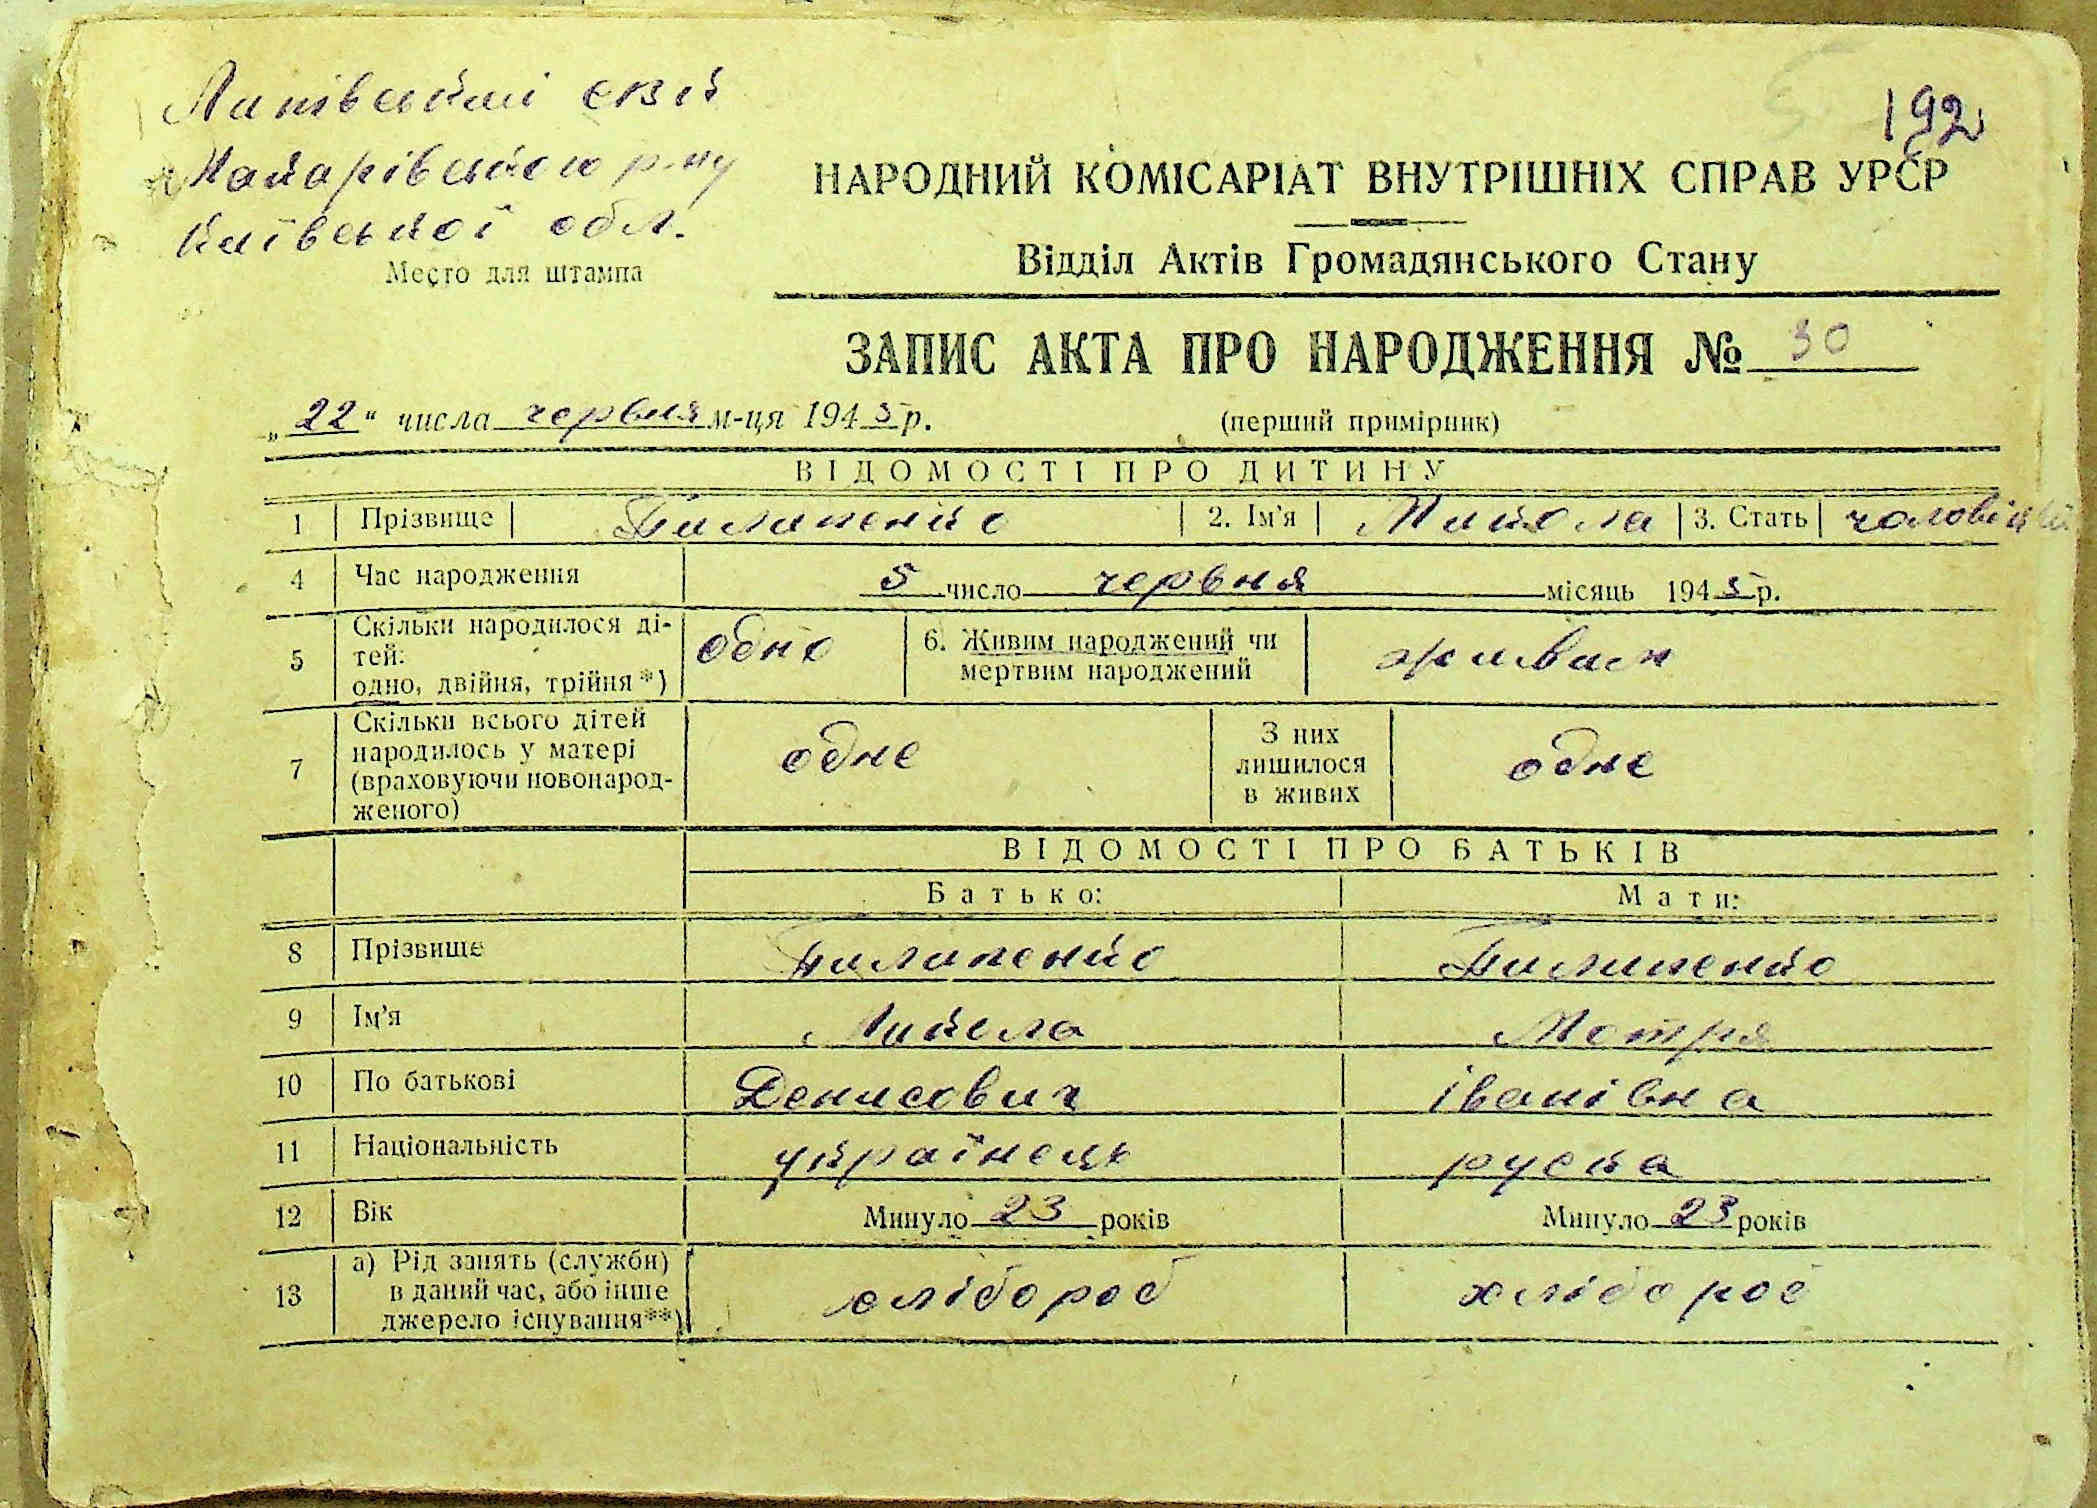 Липівський с/вій
Макарівського р-ну
Київської обл.
Место для штампа
192
НАРОДНИЙ КОМІСАРІАТ ВНУТРІШНІХ СПРАВ УРСР
Відділ Актів Громадянського Стану
ЗАПИС АКТА ПРО НАРОДЖЕННЯ № 30
„22" числа червня м-ця 1945 р.
(перший примірник)
ВІДОМОСТІ ПРО ДИТИНУ
1 Прізвище Пилипенко 2. Ім'я Микола 3. Стать чоловіч
4 Час народження 5 число червня місяць 1945 р.
5 Скільки народилося ді-
тей:
одно, двійня, трійня*) одно 6. Живим народжений чи
мертвим народжений живим
7 Скільки всього дітей
народилось у матері
(враховуючи новонарод-
женого) одне З них
лишилося
в живих одне
ВІДОМОСТІ ПРО БАТЬКІВ
Батько: Мати:
8 Прізвище Пилипенко Пилипенко
9 Ім'я Микола Мотря
10 По батькові Денисович Іванівна
11 Національність українець руска
12 Вік Минуло 23 років Минуло 23 років
13 а) Рід занять (служби)
в даний час, або інше
джерело існування**) хлібороб хлібороб